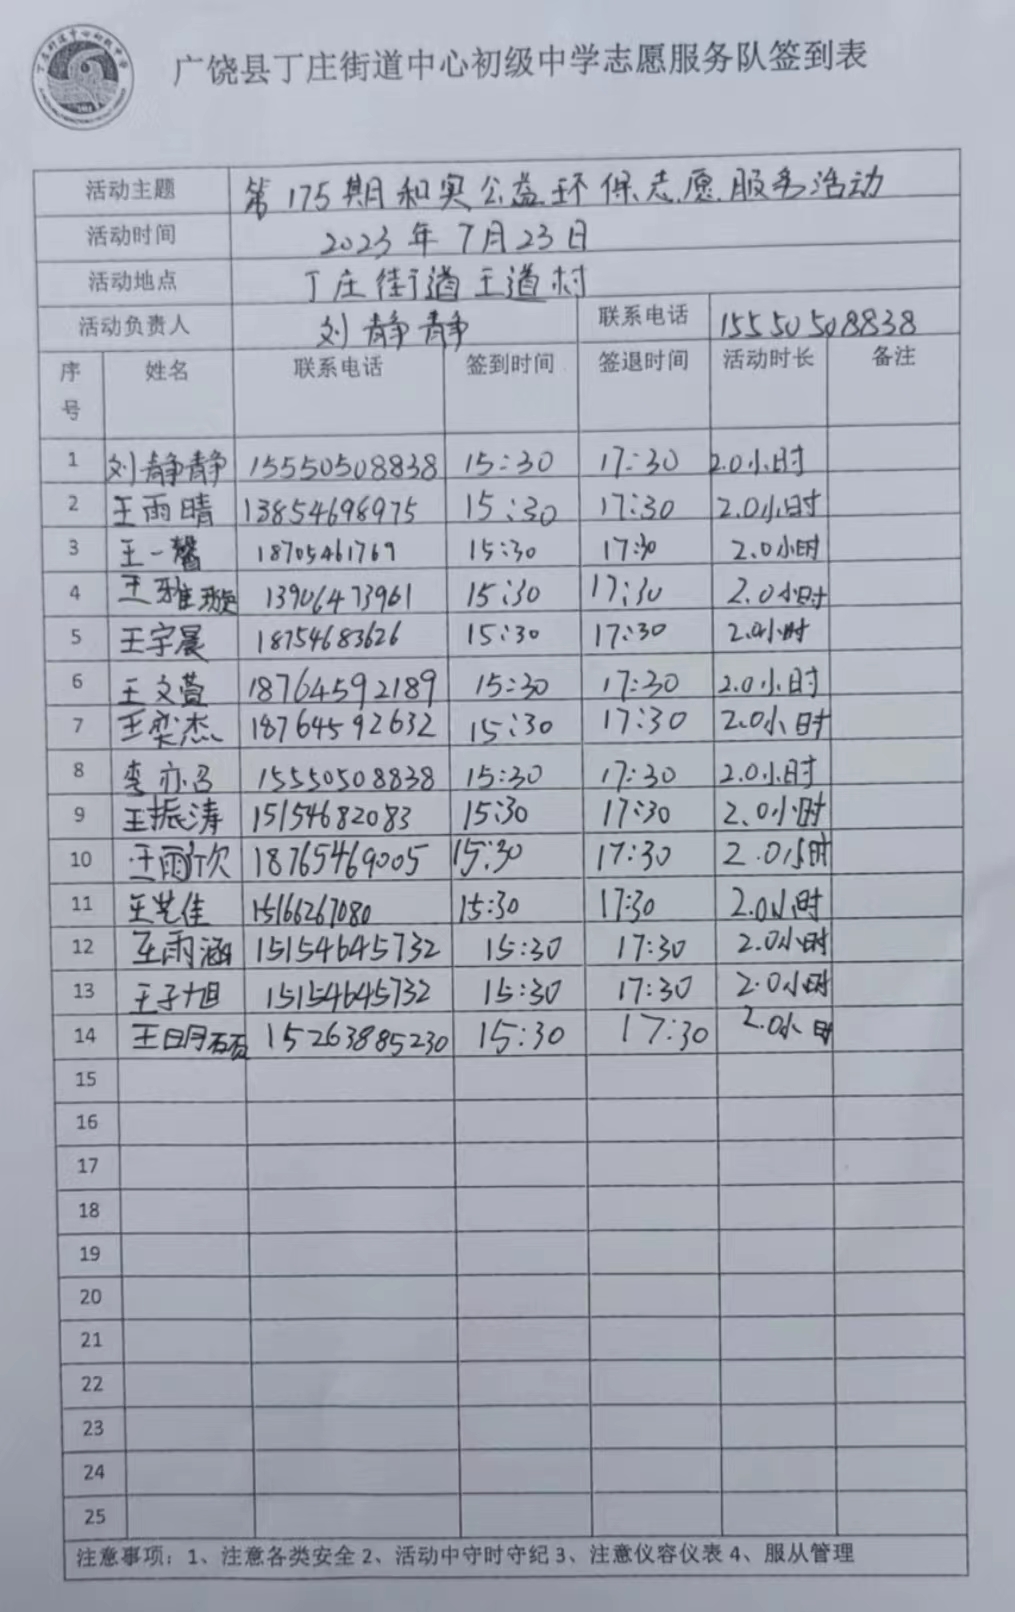 广饶县丁庄街道中心初级中学志愿服务队签到表
活动主题 第175期和奥公益环保志愿服务活动
活动时间 2023年7月23日
活动地点 丁庄街道王道村
活动负责人 刘静静 联系电话 15550508838
序号 姓名 联系电话 签到时间 签退时间 活动时长 备注
1 刘静静 15550508838 15:30 17:30 2.0小时
2 王雨晴 13854698975 15:30 17:30 2.0小时
3 王一馨 18705461769 15:30 17:30 2.0小时
4 王雅璇 13906473961 15:30 17:30 2.0小时
5 王宇晨 18754683626 15:30 17:30 2.0小时
6 王文萱 18764592189 15:30 17:30 2.0小时
7 王奕杰 18764592632 15:30 17:30 2.0小时
8 李亦召 15550508838 15:30 17:30 2.0小时
9 王振涛 15154682083 15:30 17:30 2.0小时
10 王雨欣 18765469005 15:30 17:30 2.0小时
11 王艺佳 15166267080 15:30 17:30 2.0小时
12 王雨涵 15154645732 15:30 17:30 2.0小时
13 王子旭 15154645732 15:30 17:30 2.0小时
14 王明硕 15263885230 15:30 17:30 2.0小时
15
16
17
18
19
20
21
22
23
24
25
注意事项：1、注意各类安全 2、活动中守时守纪 3、注意仪容仪表 4、服从管理